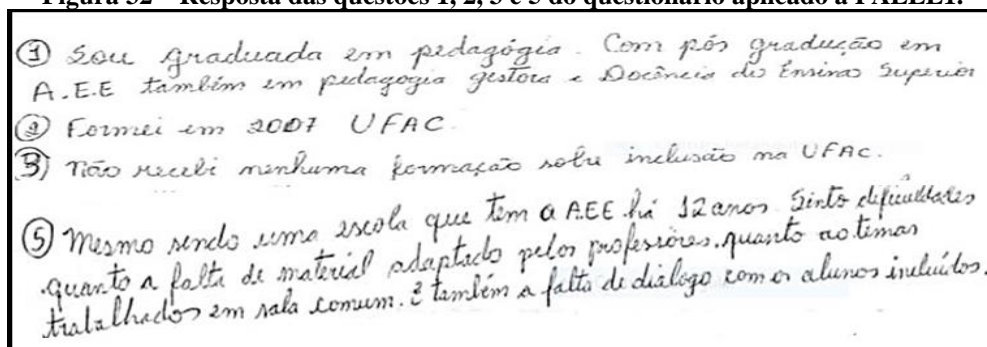 Figura 32 – Resposta das questões 1, 2, 3 e 5 do questionário aplicado à PAEEE1.
① Sou graduada em pedagógia. Com pós gradução em
A.E.E também em pedagogia gestora e Docência do Ensino Superior
② Formei em 2007 UFAC.
③ Não recebi nenhuma formação sobre inclusão na UFAC.
⑤ Mesmo sendo uma escola que tem a AEE há 12 anos. Sinto dificuldades
quanto a falta de material adaptado pelos professores, quanto ao temas
trabalhados em sala comum. E também a falta de diálogo com os alunos incluídos.